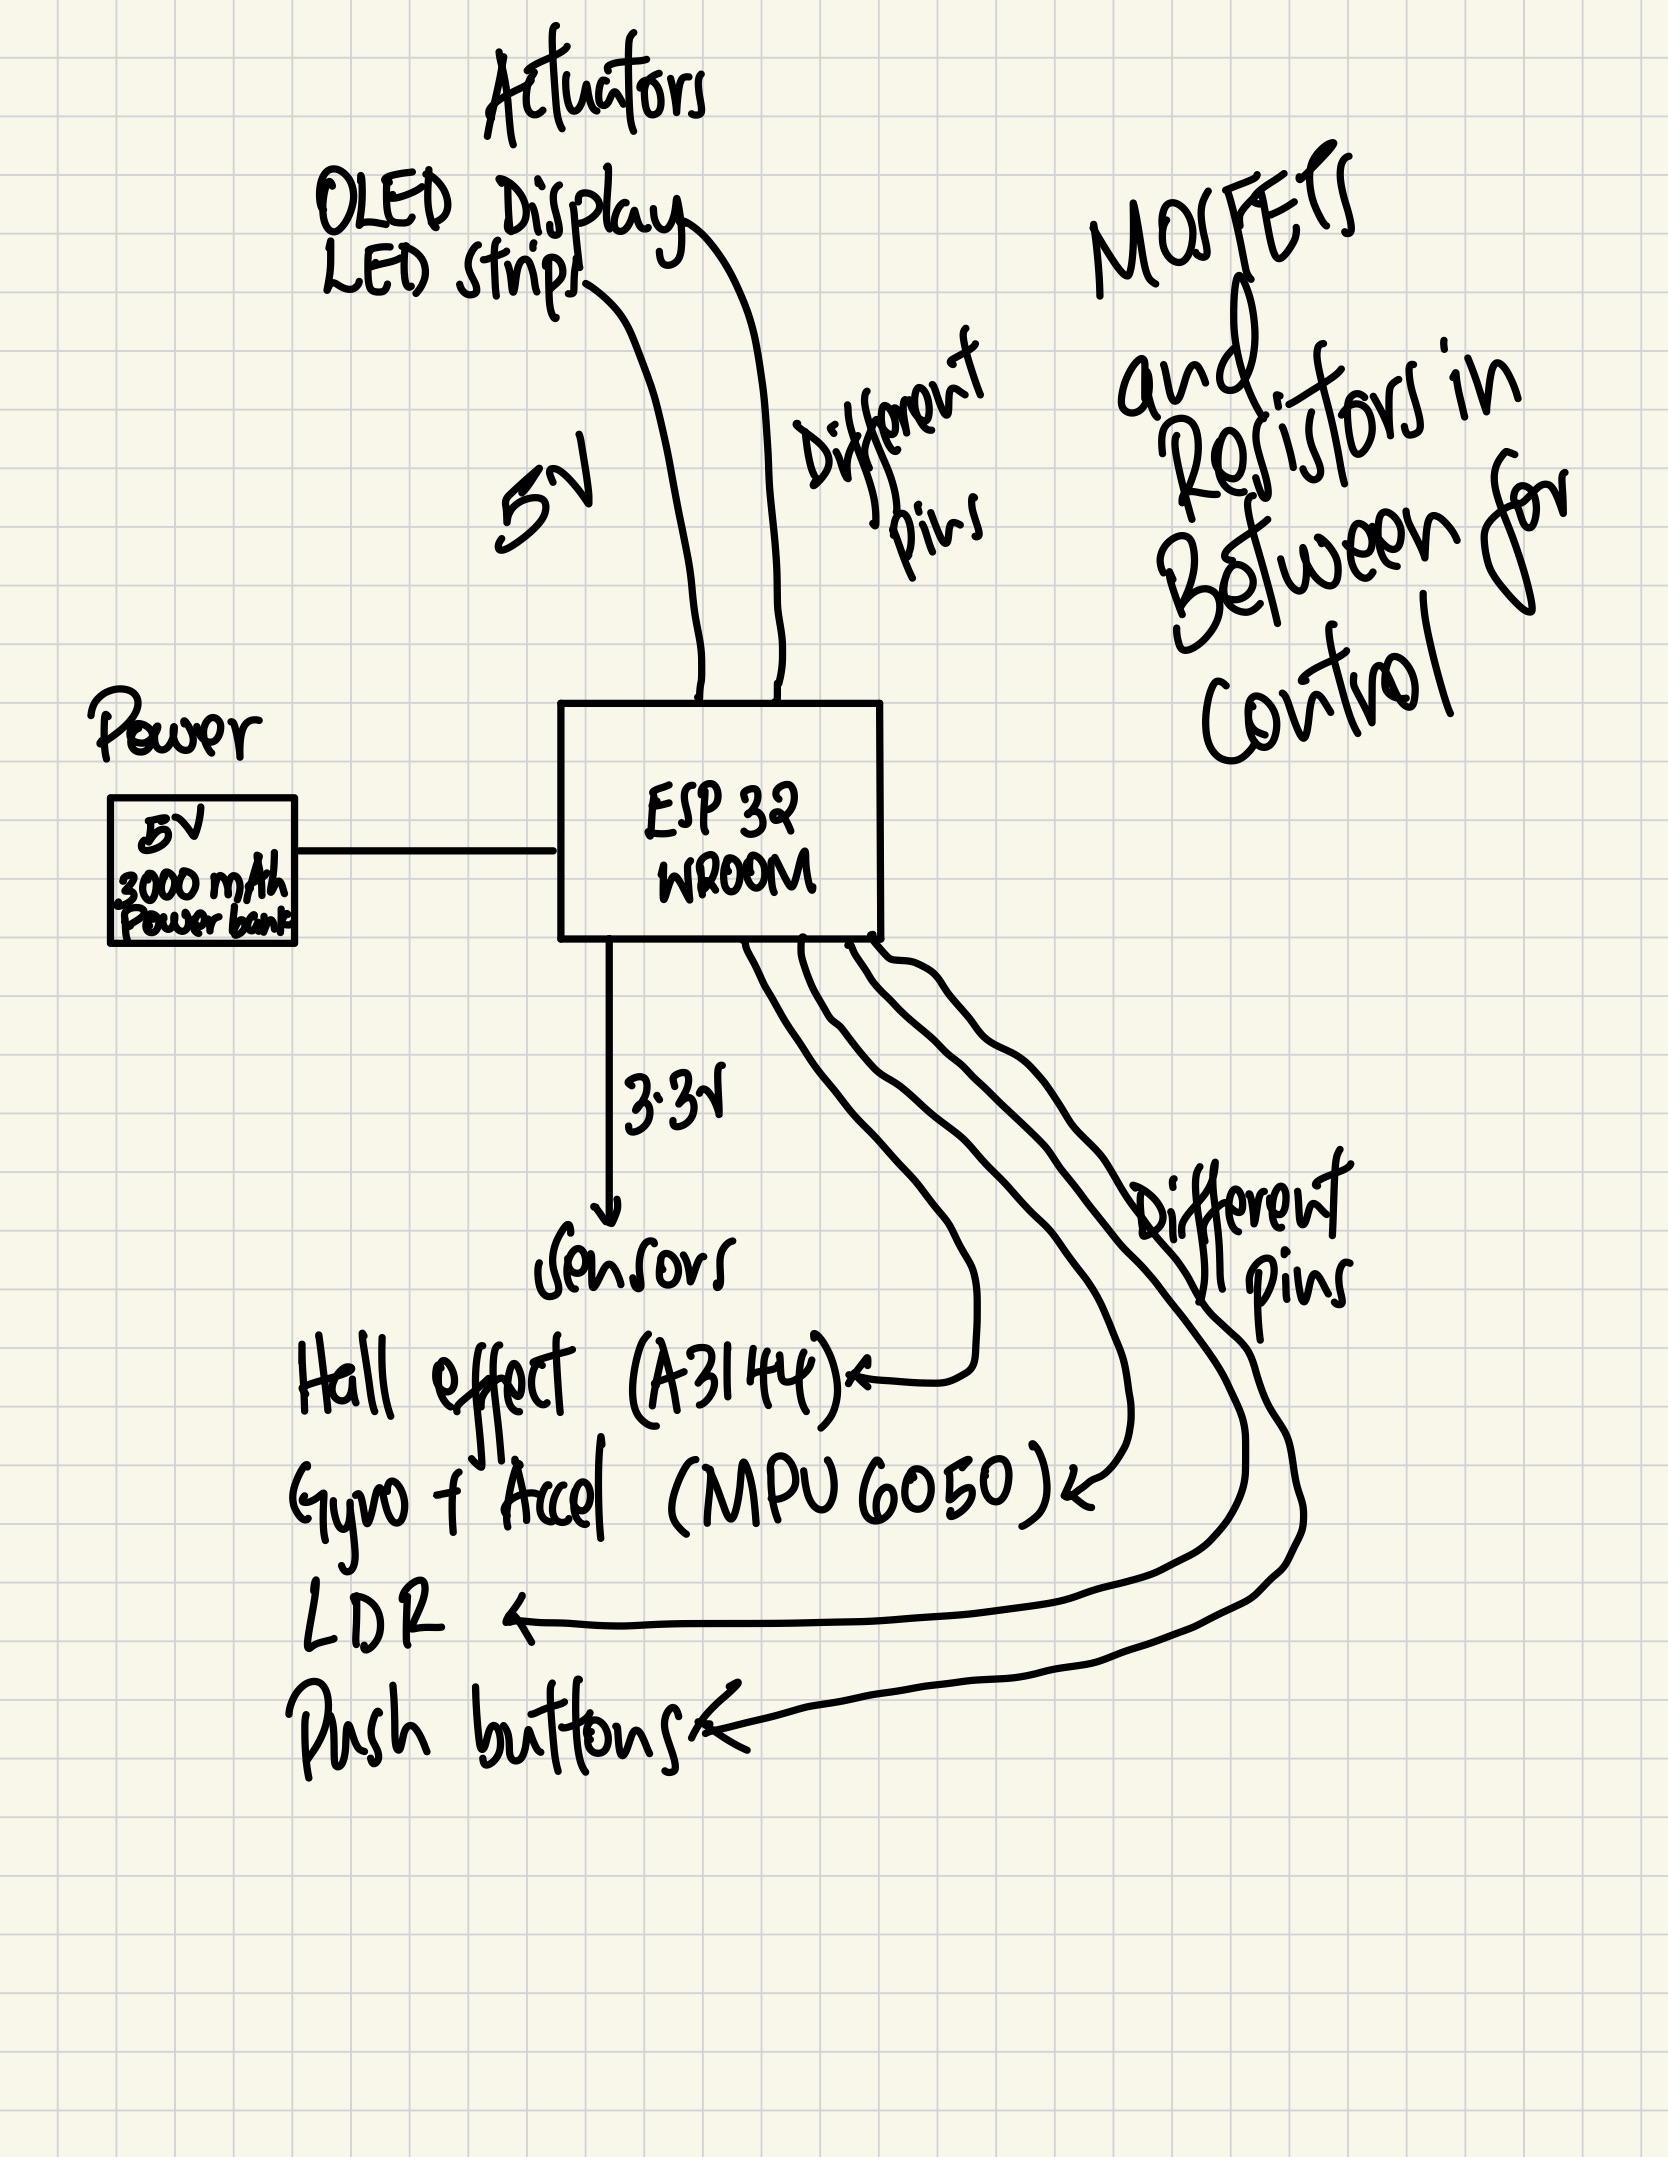 Actuators
OLED Display
LED strips
5V
Different
pins
MOSFETS
and
Resistors in
Between for
Control
Power
5V
3000 mAh
Power bank
ESP 32
WROOM
3.3V
Sensors
Different
pins
Hall effect (A3144)
Gyro + Accel (MPU 6050)
LDR
Push buttons